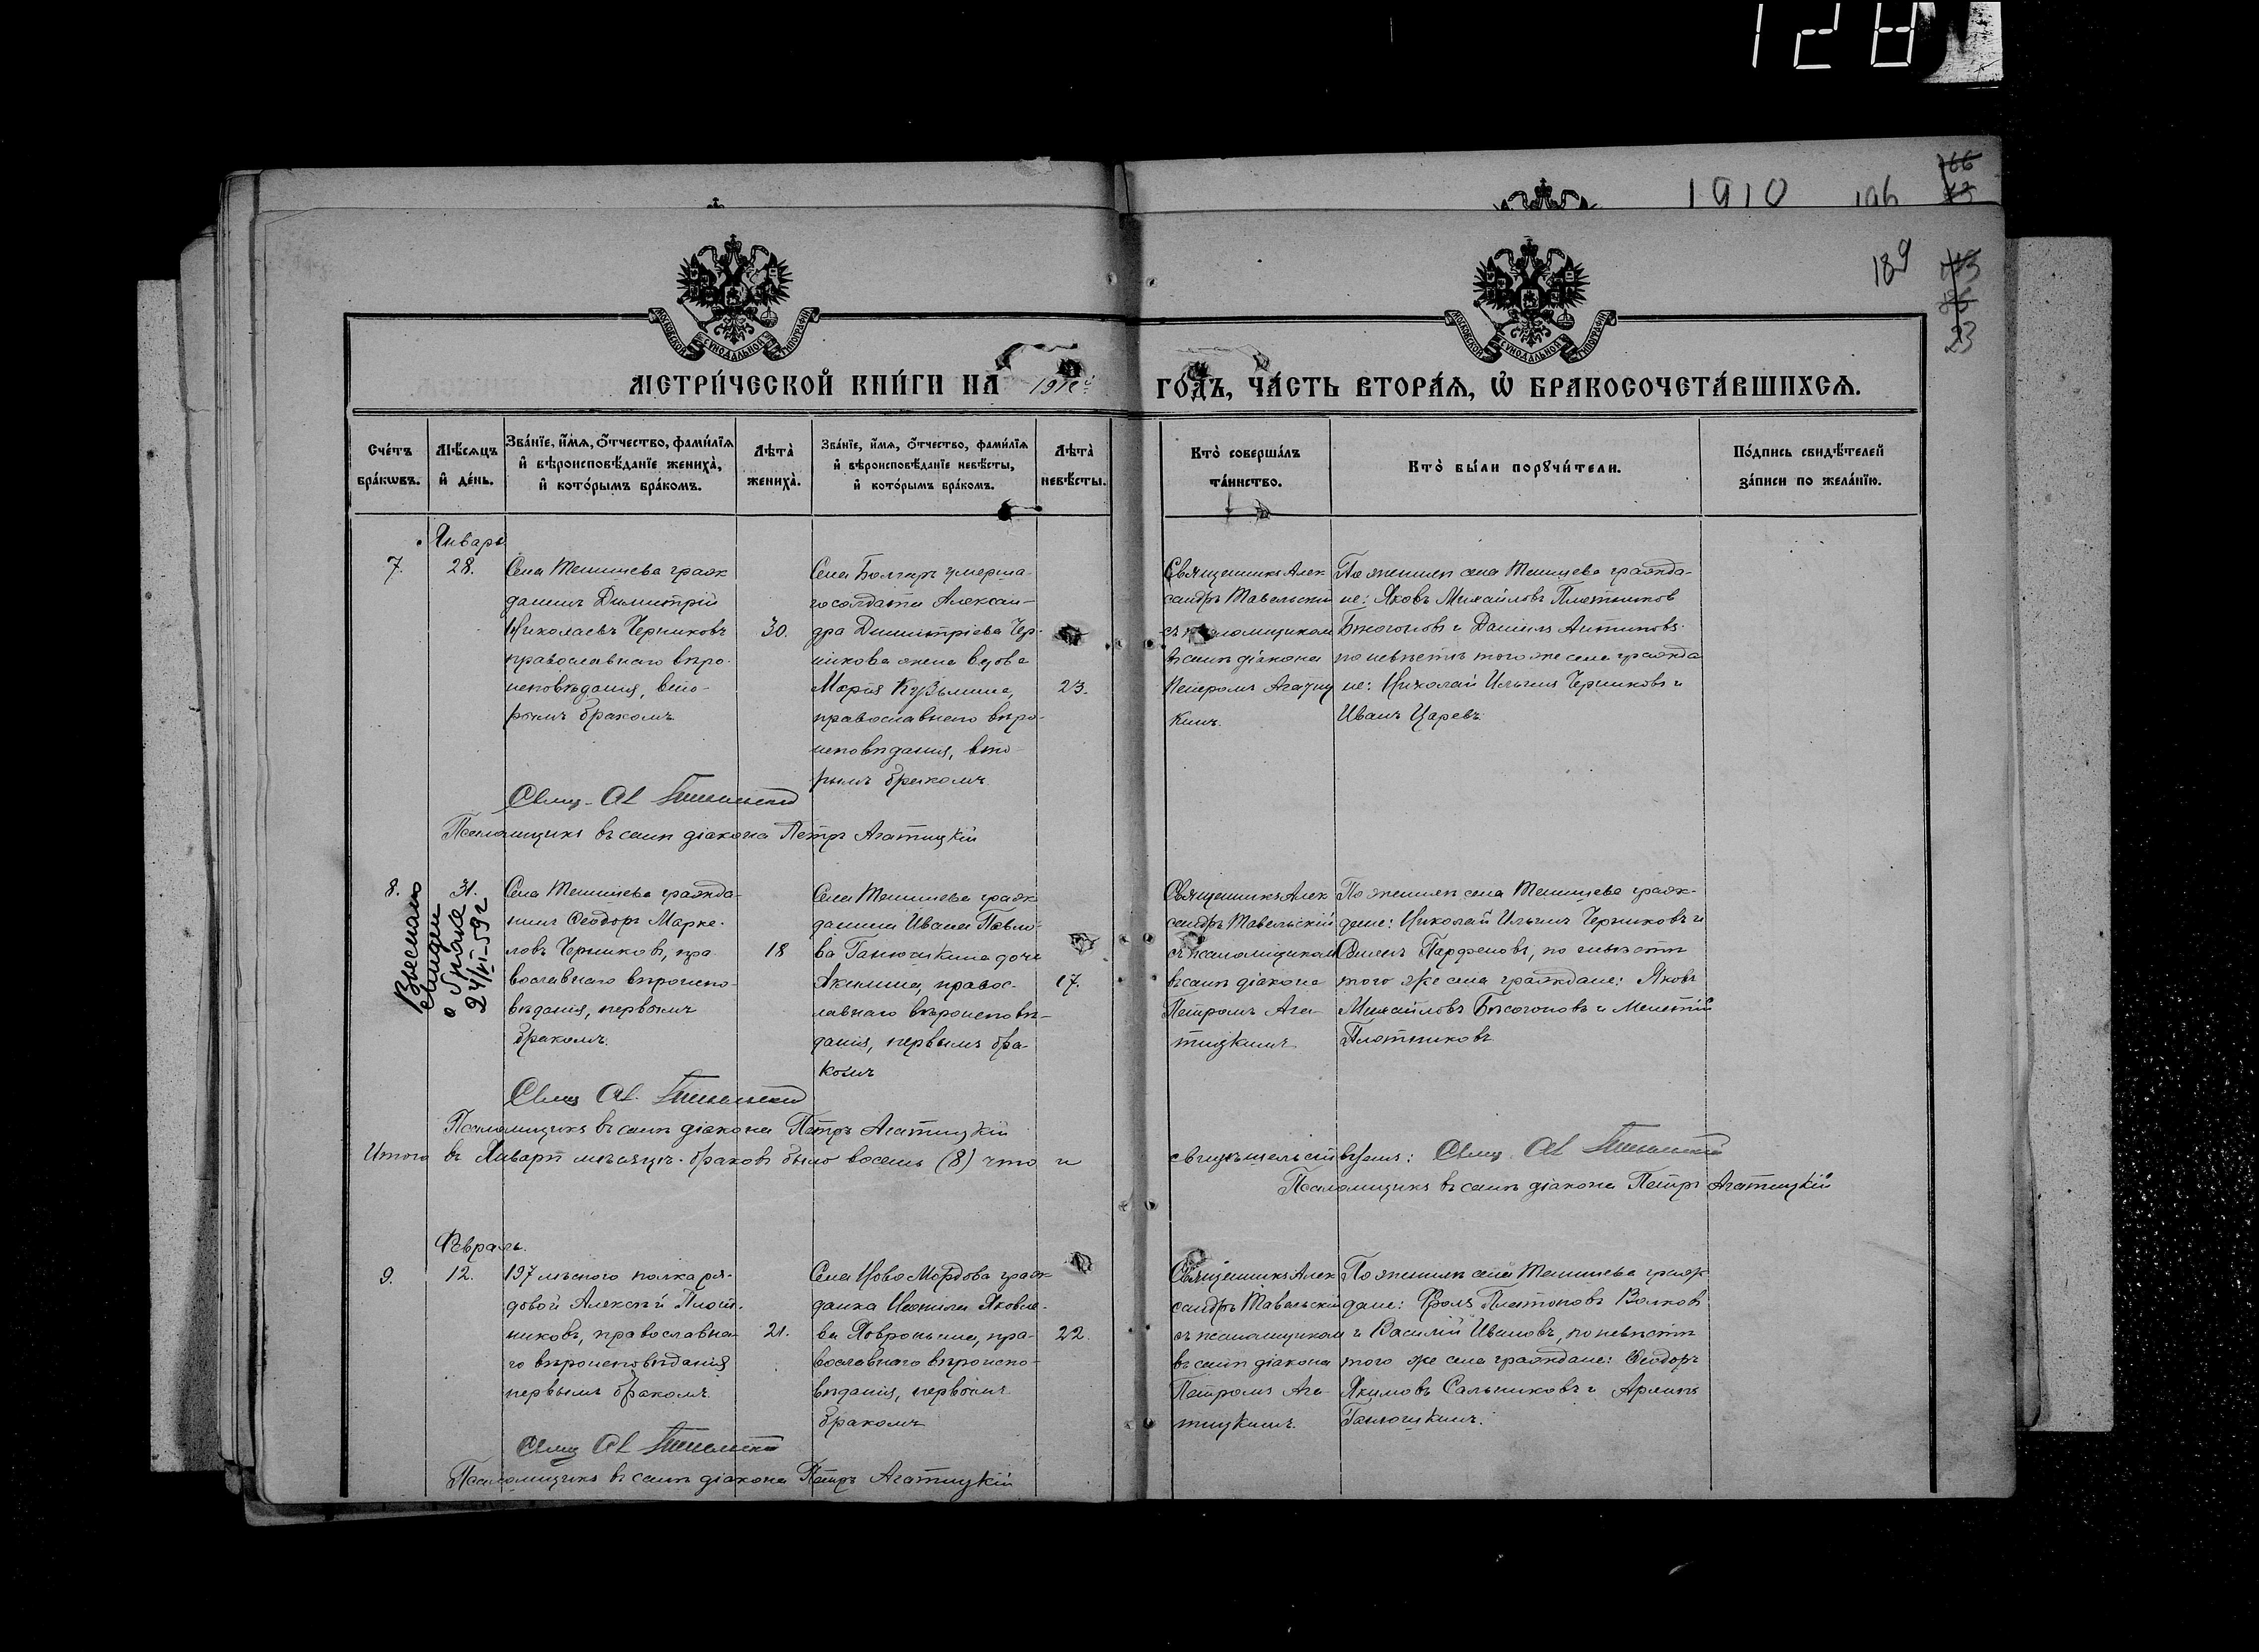 128
1910 196 166
189
23
МОСКОВСКОЙ СѴНОДАЛЬНОЙ ТИПОГРАФІИ
МОСКОВСКОЙ СѴНОДАЛЬНОЙ ТИПОГРАФІИ
МЕТРИ́ЧЕСКОЙ КНИ́ГИ НА ГО́ДЪ, ЧА́СТЬ ВТОРА́Я, Ѿ БРАКОСОЧЕТА́ВШИХСѦ.
Сче́тъ бра́кѡвъ.
Мѣ́сѧцъ и҆ де́нь.
Зва́нїе, и҆́мѧ, ѻ҆́тчество, фами́лїѧ и҆ вѣроисповѣ́данїе жениха̀, и҆ кото́рымъ бра́комъ.
Лѣта̀ жениха̀.
Зва́нїе, и҆́мѧ, ѻ҆́тчество, фами́лїѧ и҆ вѣроисповѣ́данїе невѣ́сты, и҆ кото́рымъ бра́комъ.
Лѣта̀ невѣ́сты.
Кто̀ соверша́лъ та́инство.
Кто̀ бы́ли порꙋчи́тели.
По́дпись свидѣ́телей за́писи по жела́нїю.
Январь
7.
28.
Села Тенишева граж
данинъ Димитрій
Николаевъ Черниковъ
православнаго вѣро-
исповѣданія, вто-
рымъ бракомъ
30.
Села Болгаръ умерша-
го солдата Алексан-
дра Димитріева Чер-
никова жена вдова
Марія Кузьмина,
православнаго вѣро-
исповѣданія, вто-
рымъ бракомъ
23.
Священникъ Алек
сандръ Тавельскій
съ псаломщикомъ
въ санѣ діакона
Петромъ Агатиц
кимъ.
По женихѣ села Тенишева гражда-
не: Яковъ Михайловъ Плотников
Бѣсогоновъ и Даніилъ Антиповъ.
по невѣстѣ того же села гражда
не: Николай Ильинъ Черниковъ и
Иванъ Царевъ.
Свящ. Ал. Тавельскій
Псаломщикъ въ санѣ діакона Петръ Агатицкій
8.
31.
о браке
24/VI-59 г
Села Тенишева гражда-
нинъ Ѳеодоръ Марке-
ловъ Черниковъ, пра
вославнаго вѣроиспо-
вѣданія, первымъ
бракомъ.
18
Села Тенишева граж
данина Ивана Павло-
ва Ганючкина дочь
Акилина, правос-
лавнаго вѣроисповѣ-
данія, первымъ бра-
комъ
17.
Священникъ Алек
сандръ Тавельскій
съ псаломщикомъ
въ санѣ діакона
Петромъ Ага-
тицкимъ
По женихѣ села Тенишева граж-
дане: Николай Ильинъ Черниковъ и
Парфеновъ, по невѣстѣ
того же села граждане: Яковъ
Михайловъ Бѣсогоновъ и Мелетій
Плотниковъ
Свящ. Ал. Тавельскій
Псаломщикъ въ санѣ діакона Петръ Агатицкій
Итого въ Январѣ мѣсяцѣ браковъ было восемь (8) что и
свидѣтельствуемъ: Свящ. Ал. Тавельскій
Псаломщикъ въ санѣ діакона Петръ Агатицкій
Февраль.
9.
12.
197 лѣсного полка ря-
довой Алексѣй Плот-
никовъ, православна-
го вѣроисповѣданія
первымъ бракомъ.
21.
Села Ново Мордова граж
данка Яковле-
ва Явронькина, пра-
вославнаго вѣроиспо-
вѣданія, первымъ
бракомъ
22.
Священникъ Алек
сандръ Тавельскій
съ псаломщикомъ
въ санѣ діакона
Петромъ Ага
тицкимъ.
По женихѣ села Тенишева граж
дане: Фролъ Платоновъ Волковъ
и Василій Ивановъ, по невѣстѣ
того же села граждане: Ѳеодоръ
Якимовъ Сальниковъ и
Ганючкинъ.
Свящ. Ал. Тавельскій
Псаломщикъ въ санѣ діакона Петръ Агатицкій